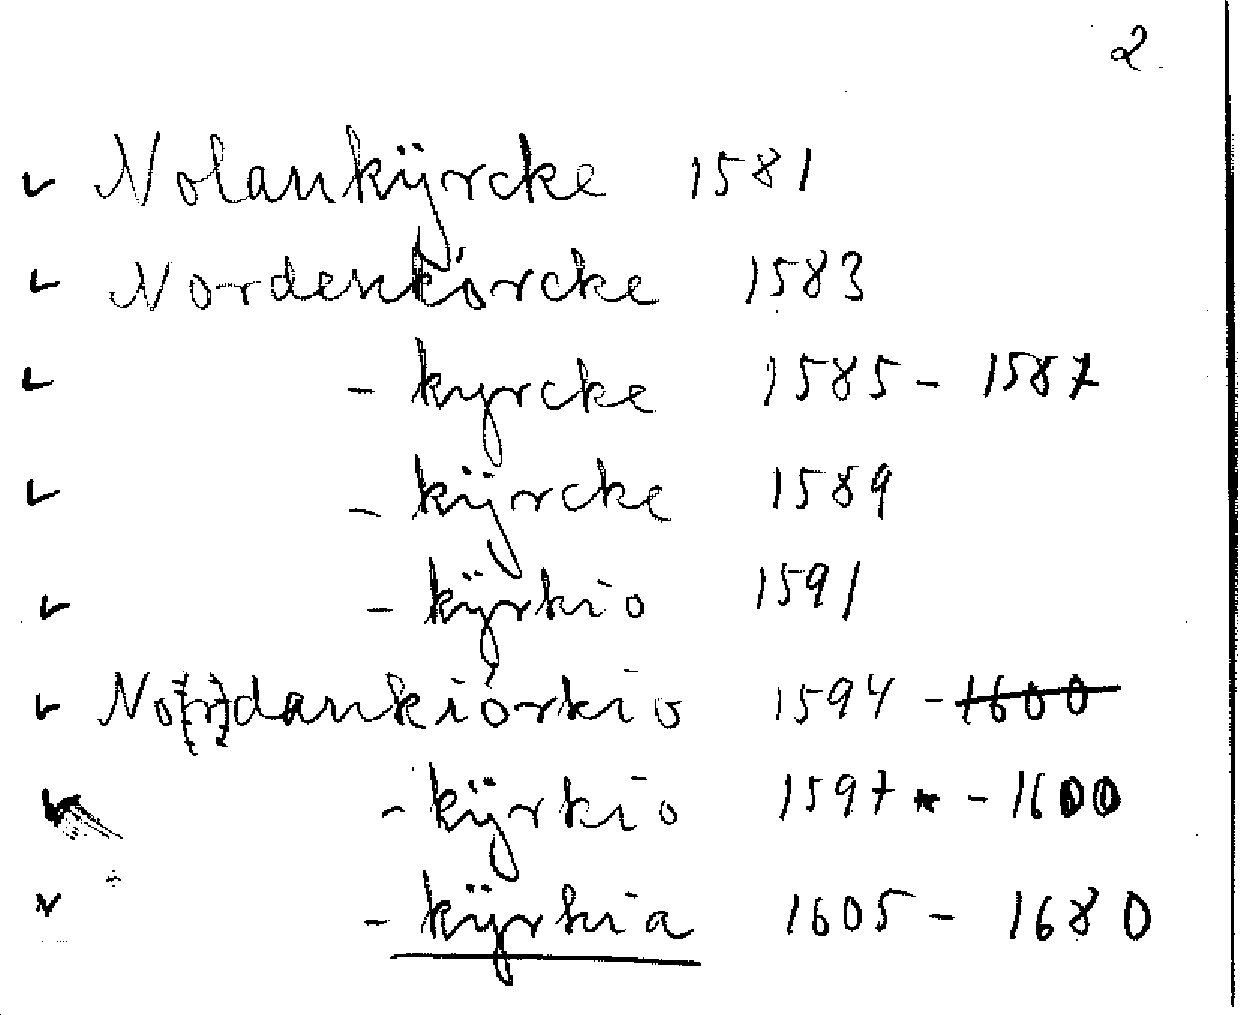 2.
✓ Nolankÿrcke 1581
✓ Nordenkörcke 1583
✓ - kyrcke 1585 - 1587
✓ - kÿrcke 1589
✓ - kÿrkio 1591
✓ No(r)dankiörkio 1594 - 1600
✓ - kÿrkio 1597 - 1600
✓ - kÿrkia 1605 - 1680